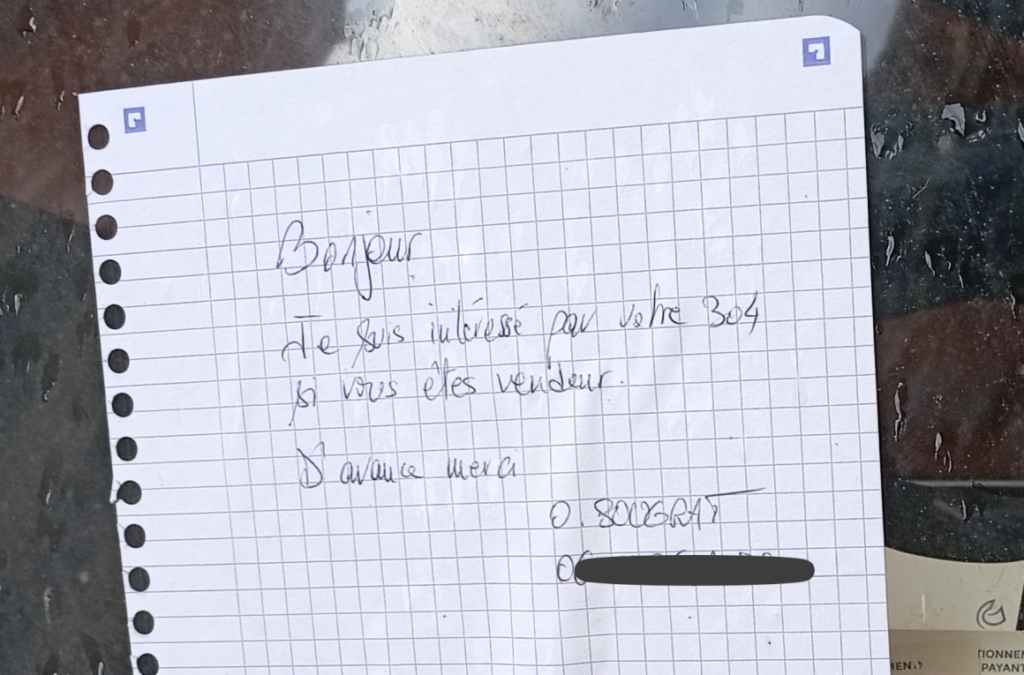 Bonjour
Je suis intéressé par votre 304
si vous êtes vendeur.
D'avance merci
O. SOUGRAT
06
TIONNEM
PAYANT